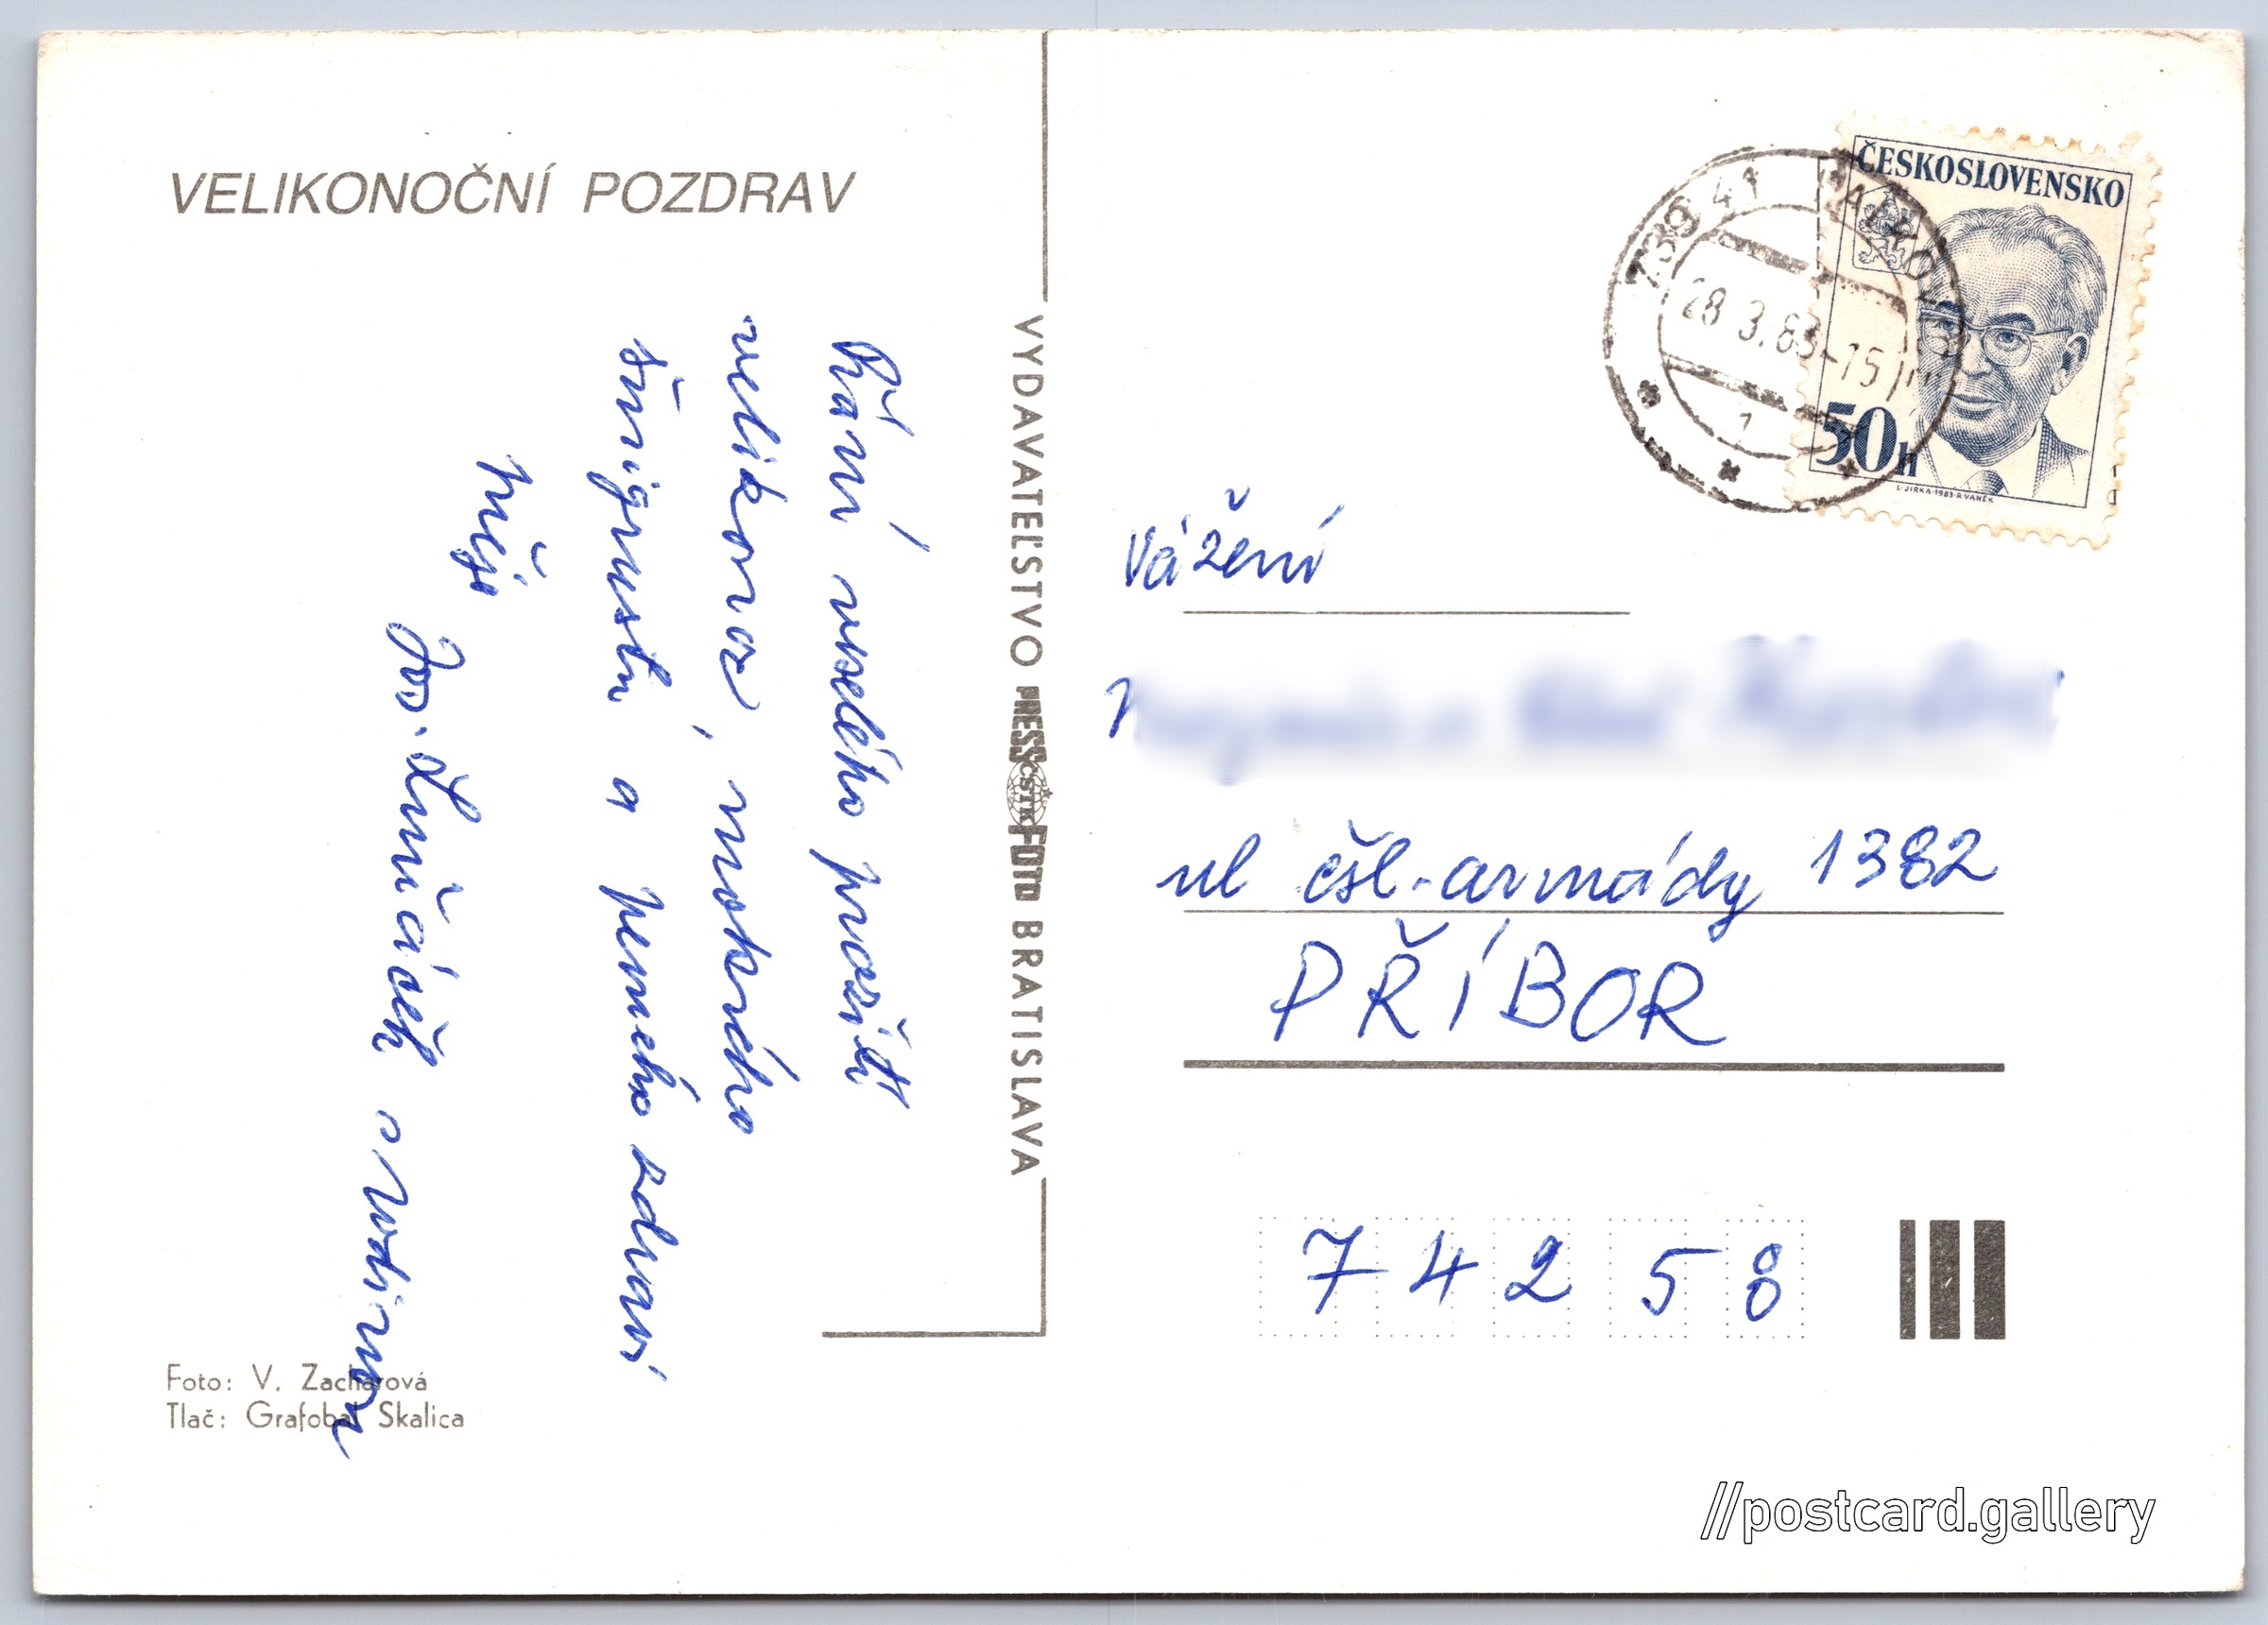 VELIKONOČNÍ POZDRAV
Přání veselého prožití
velikonoc, mokrého
šmigrustu a pevného zdraví
přeje
Jos. s rodinou
Foto: V. Zacharová
Tlač: Grafobal Skalica
VYDAVATEĽSTVO PRESSFOTO BRATISLAVA
ČSTK
739 41
28 3.83-15
1
ČESKOSLOVENSKO
50h
L·JIRKA·1983·R·VANĚK
Vážení
ul čsl. armády 1382
PŘÍBOR
742 58
//postcard.gallery